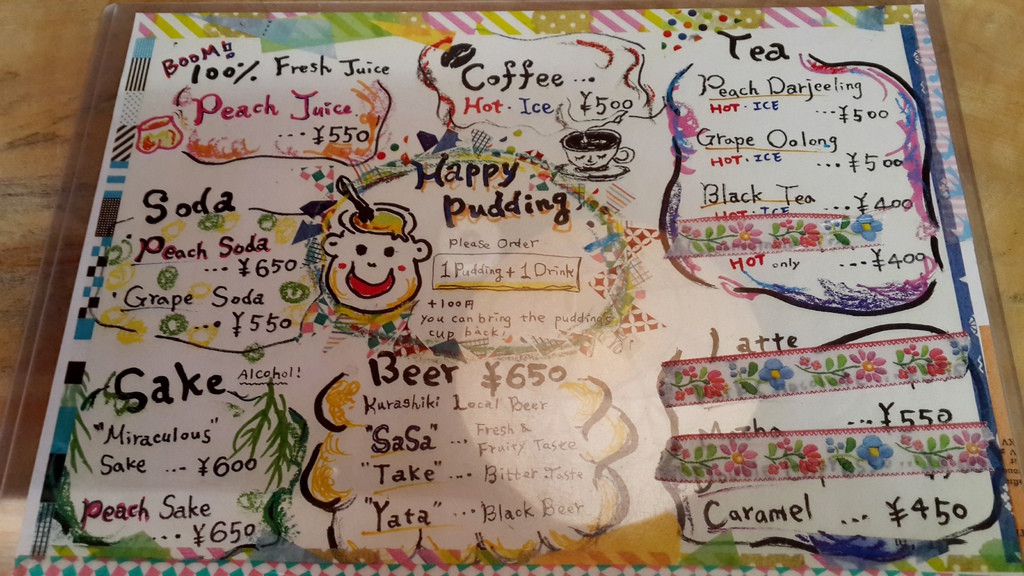 BOOM!!
100% Fresh Juice
Peach Juice
... ¥550
Coffee ...
Hot・Ice ¥500
Tea
Peach Darjeeling
HOT・ICE ... ¥500
Grape Oolong
HOT・ICE ... ¥500
Black Tea ... ¥400
HOT・ICE
HOT only ... ¥400
Soda
Peach Soda
... ¥650
Grape Soda
... ¥550
Happy
Pudding
Please Order
1 Pudding + 1 Drink
+100円
you can bring the pudding's
cup back!
Sake Alcohol!
"Miraculous"
Sake ... ¥600
Peach Sake
... ¥650
Beer ¥650
Kurashiki Local Beer
"SaSa" ... Fresh &
Fruity Taste
"Take" ... Bitter Taste
"Yata" ... Black Beer
Latte
¥550
Caramel ... ¥450